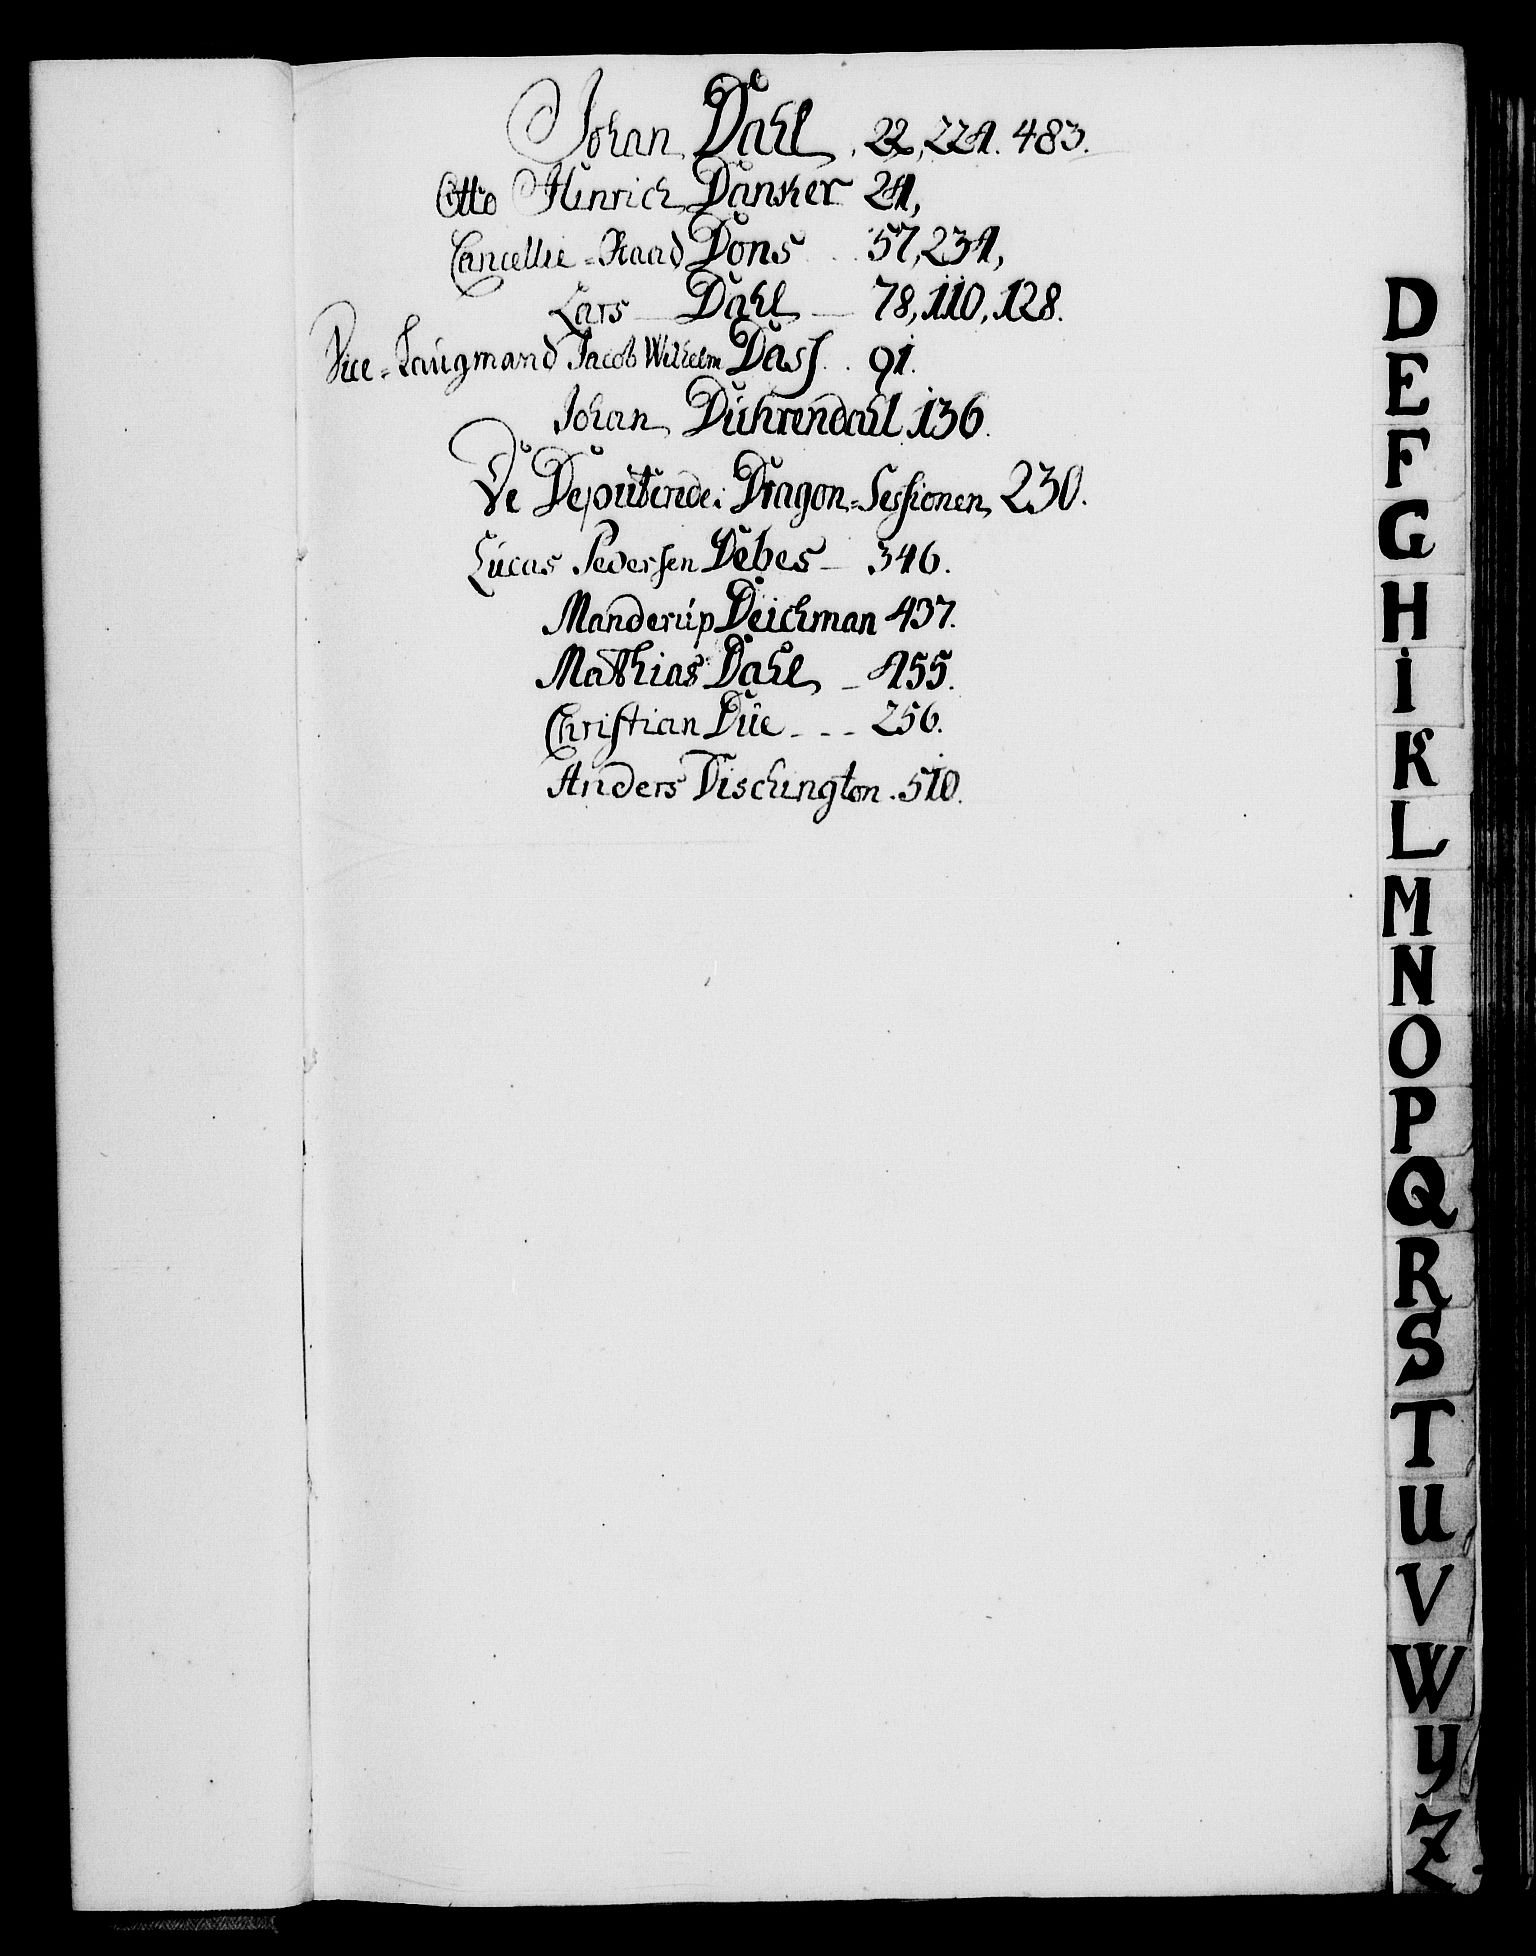 Johan Dahl . 22, 224. 483.
Otto Hinrich Danker 24,
Cancellie-Raad Dons . . 57, 234,
Lars Dahl — 78, 110, 128.
Vice-Laugmand Jacob Wilhelm Dass . . 91.
Johan Duhrendahl 136.
De Deputerede i Dragon-Sessionen 230.
Lucas Pedersen Debes — 346.
Manderup Deichman 437.
Mathias Dahl — 455.
Christian Due - - - 256.
Anders Dischington . 510.
D
E
F
G
H
I
K
L
M
N
O
P
Q
R
S
T
U
V
W
Y
Z